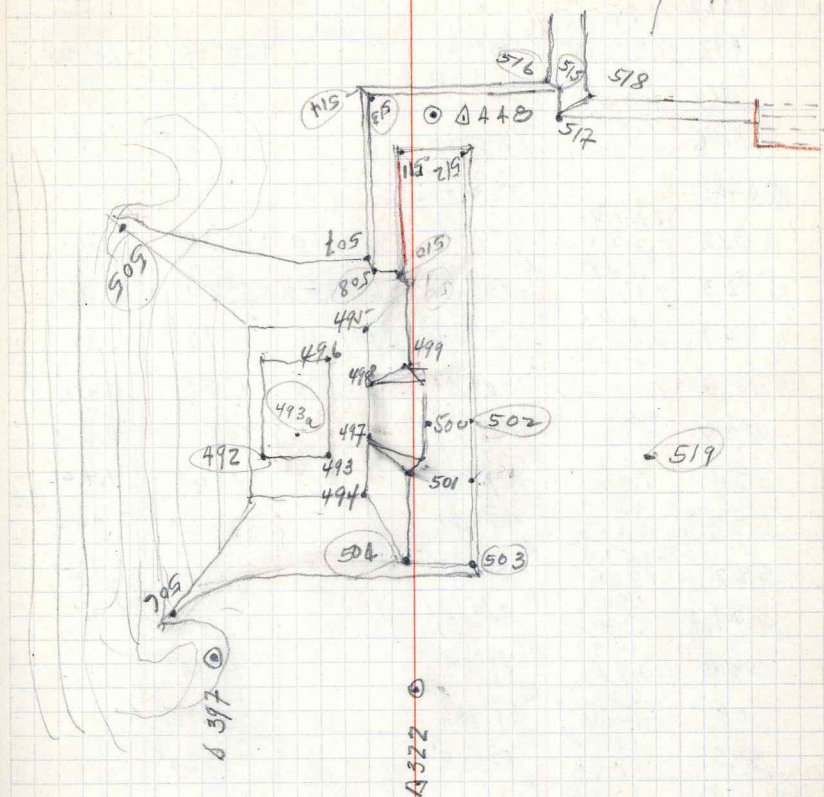 516
515
518
514
513
△448
517
511
512
507
510
505
508
495
499
496
498
493a
500
502
497
492
493
501
519
494
504
503
506
△397
△322